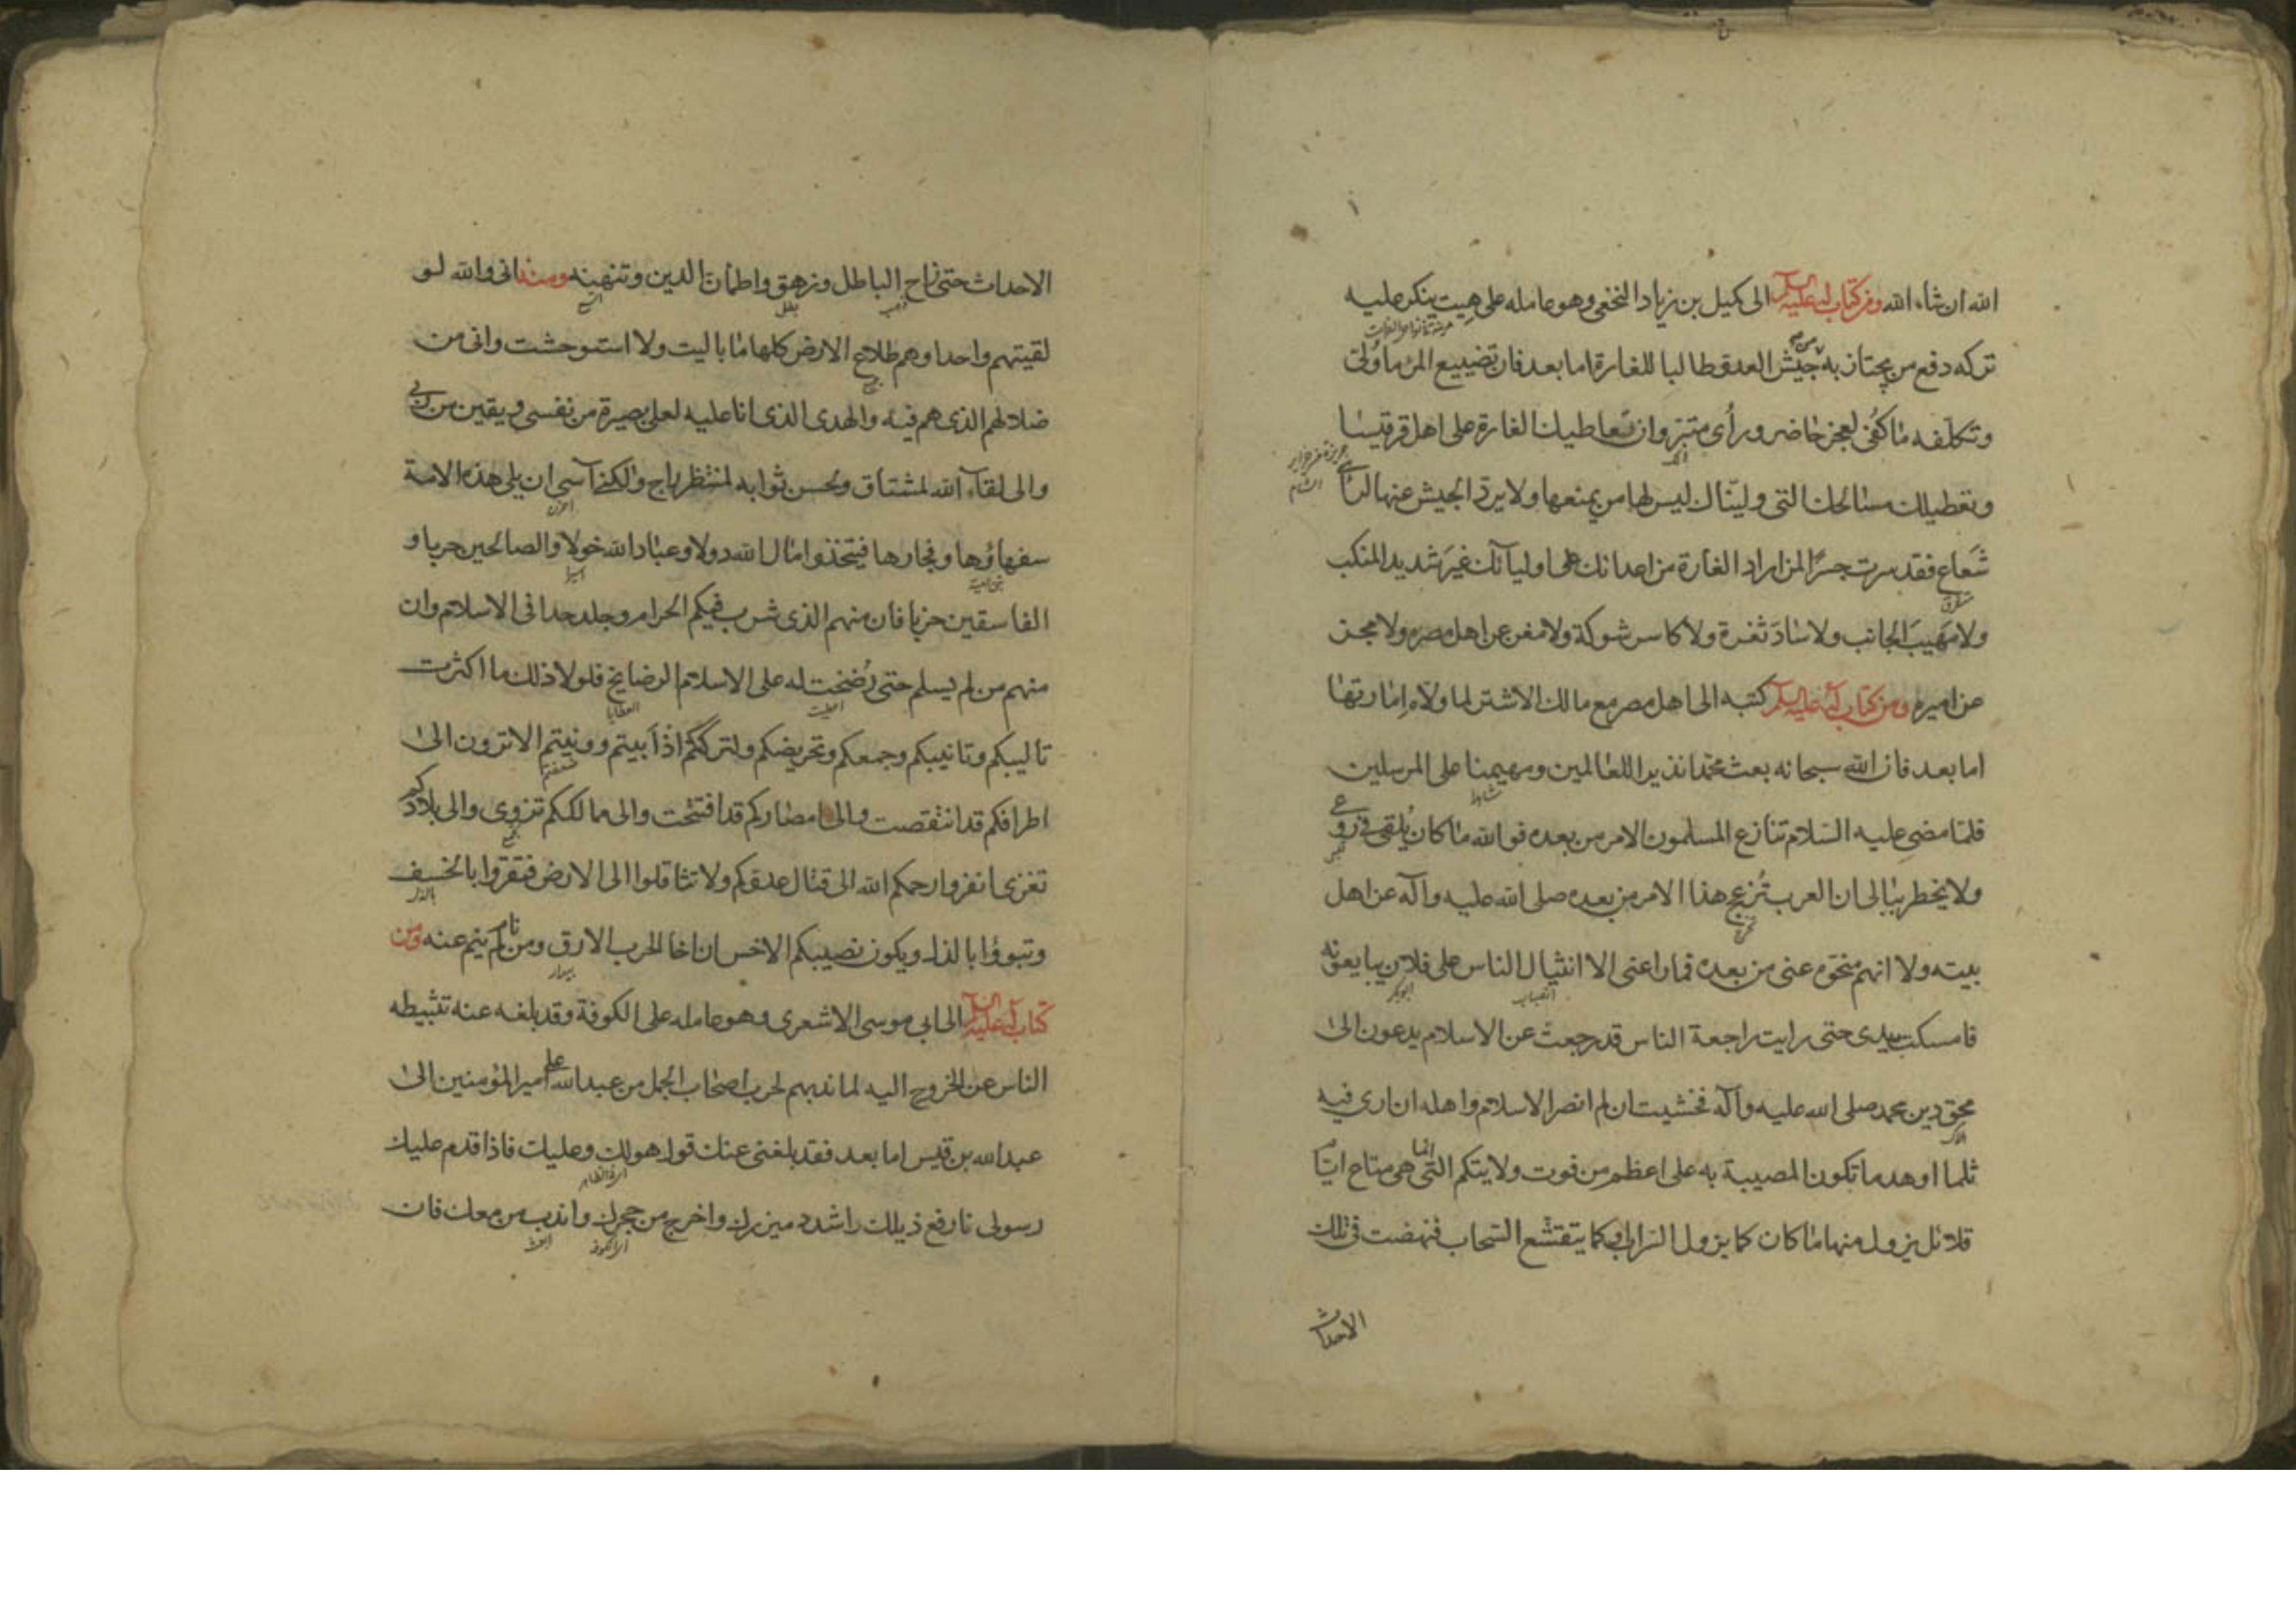 الله ان شاء الله ومن كتاب له عليه السلام الى كميل بن زياد النخعى وهو عامله على هيت ينكر عليه
تركه دفع من يجتاز به من جيش العدو طالبا للغارة اما بعد فان تضييع المرء ما ولى
وتكلفه ما كفى لعجز حاضر ورأى متبر وان تعاطيك الغارة على اهل قرقيسا
وتعطيلك مسالحك التى وليناك ليس لها من يمنعها ولا يرد الجيش عنها لرأى
شعاع فقد صرت جسرا لمن اراد الغارة من اعدائك على اوليائك غير شديد المنكب
ولا مهيب الجانب ولا ساد ثغرة ولا كاسر شوكة ولا مغن عن اهل مصره ولا مجز
عن اميره ومن كتاب له عليه السلام كتبه الى اهل مصر مع مالك الاشتر لما ولاه امارتها
اما بعد فان الله سبحانه بعث محمدا نذيرا للعالمين ومهيمنا على المرسلين
شاهدا
فلما مضى عليه السلام تنازع المسلمون الامر من بعده فوالله ما كان يلقى فى روعى
ولا يخطر ببالى ان العرب تزعج هذا الامر من بعده صلى الله عليه وآله عن اهل
بيته ولا انهم منحوه عنى من بعده فما راعنى الا انثيال الناس على فلان يبايعونه
انصباب ابوبكر
فامسكت بيدى حتى رايت راجعة الناس قد رجعت عن الاسلام يدعون الى
محق دين محمد صلى الله عليه وآله فخشيت ان لم انصر الاسلام واهله ان ارى فيه
ثلما او هدما تكون المصيبة به على اعظم من فوت ولايتكم التى انما هى متاع ايام
قلائل يزول منها ما كان كما يزول السراب وكما يتقشع السحاب فنهضت فى تلك
الاحداث
الاحداث حتى زاح الباطل وزهق واطمأن الدين وتنهنه ومنه انى والله لو
ذهب بطل
لقيتهم واحدا وهم طلاع الارض كلها ما باليت ولا استوحشت وانى من
ضلالهم الذى هم فيه والهدى الذى انا عليه لعلى بصيرة من نفسى ويقين من ربى
والى لقاء الله لمشتاق ولحسن ثوابه لمنتظر راج ولكنى آسى ان يلى هذه الامة
احزن
سفهاؤها وفجارها فيتخذوا مال الله دولا وعباد الله خولا والصالحين حربا و
بنى امية
الفاسقين حزبا فان منهم الذى شرب فيكم الحرام وجلد حدا فى الاسلام وان
منهم من لم يسلم حتى رضخت له على الاسلام الرضايخ فلولا ذلك ما اكثرت
اعطيت العطايا
تأليبكم وتانيبكم وجمعكم وتحريضكم ولتركتكم اذ ابيتم وونيتم الا ترون الى
ضعفتم
اطرافكم قد انتقصت والى امصاركم قد افتتحت والى ممالككم تزوى والى بلادكم
تغزى انفروا رحمكم الله الى قتال عدوكم ولا تثاقلوا الى الارض فتقروا بالخسف
وتبوؤا بالذل ويكون نصيبكم الاخس ان اخا الحرب الارق ومن نام لم ينم عنه ومن
بيدار
كتاب له عليه السلام الى ابى موسى الاشعرى وهو عامله على الكوفة وقد بلغه عنه تثبيطه
الناس عن الخروج اليه لما ندبهم لحرب اصحاب الجمل من عبد الله على امير المؤمنين الى
عبد الله بن قيس اما بعد فقد بلغنى عنك قول هو لك وعليك فاذا قدم عليك
رسولى فارفع ذيلك واشدد ميزرك واخرج من جحرك واندب من معك فان